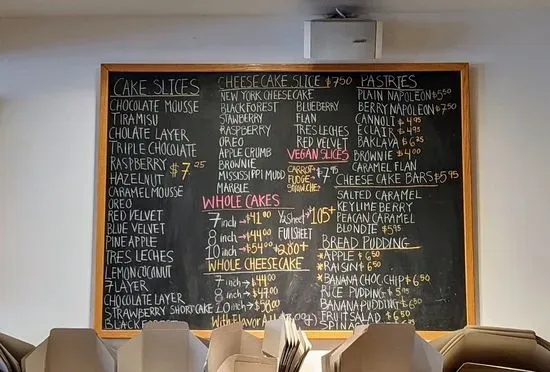 CAKE SLICES
CHOCOLATE MOUSSE
TIRAMISU
CHOLATE LAYER
TRIPLE CHOCOLATE
RASPBERRY $7.25
HAZELNUT
CARAMEL MOUSSE
OREO
RED VELVET
BLUE VELVET
PINE APPLE
TRES LECHES
LEMON COCONUT
7 LAYER
CHOCOLATE LAYER
STRAWBERRY SHORTCAKE
BLACK FOREST
CHEESECAKE SLICE $7.50
NEW YORK CHEESECAKE
BLACKFOREST
STAWBERRY
RASPBERRY
OREO
APPLE CRUMB
BROWNIE
MISSISSIPPI MUDD
MARBLE
BLUEBERRY
FLAN
TRES LECHES
RED VELVET
VEGAN SLICES
CARROT
FUDGE
$7.75
WHOLE CAKES
7 inch → $41.00
8 inch → $44.00
10 inch → $54.00
1/2 Sheet $105+
FULL SHEET
$280+
WHOLE CHEESECAKE
7 inch → $44.00
8 inch → $47.00
10 inch → $58.00
With Flavor
PASTRIES
PLAIN NAPOLEON $5.50
BERRY NAPOLEON $7.50
CANNOLI $4.95
ECLAIR $4.95
BAKLAVA $6.25
BROWNIE $4.00
CARAMEL FLAN
CHEESE CAKE BARS $5.95
SALTED CARAMEL
KEYLIME BERRY
PEACAN CARAMEL
BLONDIE $5.95
BREAD PUDDING
*APPLE $6.50
*RAISIN $6.50
*BANANA CHOC. CHIP $6.50
RICE PUDDING $5.95
BANANA PUDDING $6.50
FRUIT SALAD $6.50